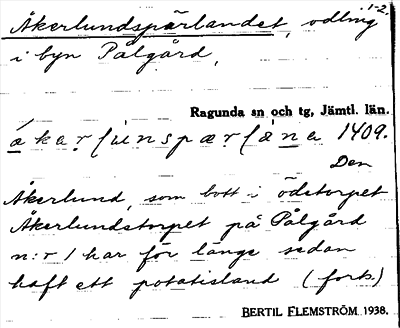 Åkerlundspärlandet, odling 1-2.
i byn Pålgård,
Ragunda sn och tg, Jämtl. län.
1409.
Den
Åkerlund, som bott i ödetorpet
Åkerlundstorpet på Pålgård
n:r 1 har för länge sedan
haft ett potatisland (forts.)
BERTIL FLEMSTRÖM 1938.